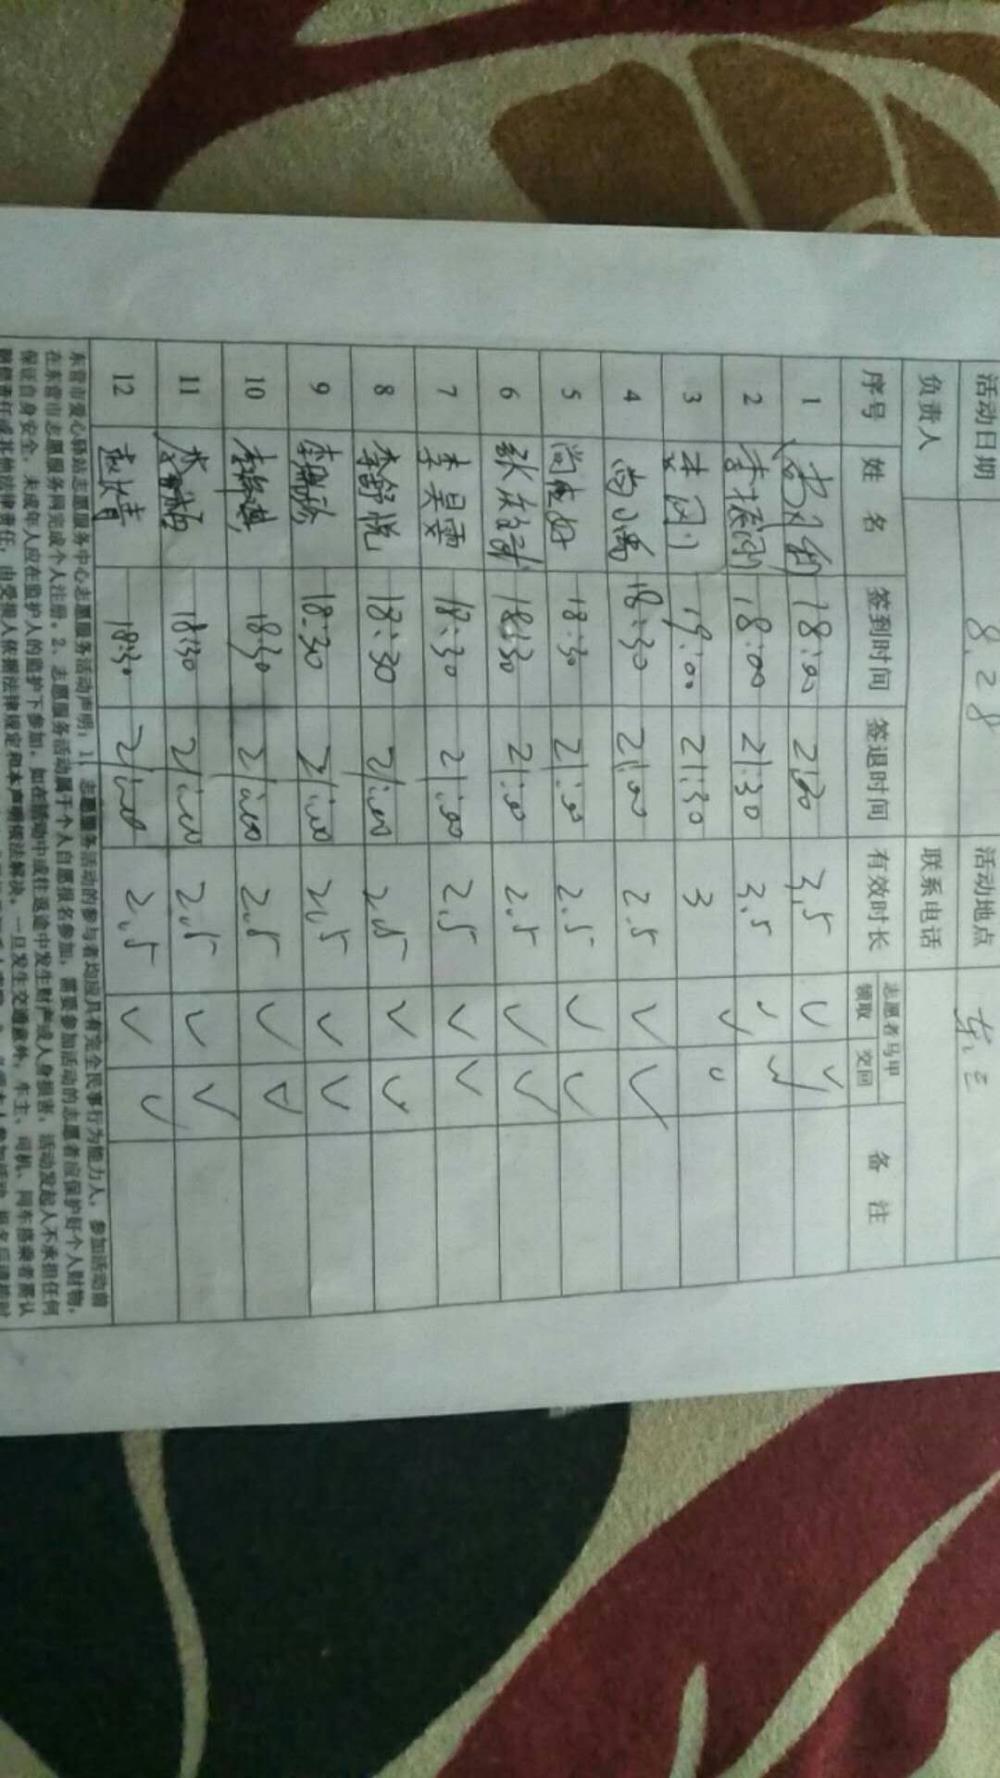 活动日期 8.28 活动地点 东三
负责人 联系电话
序号 姓 名 签到时间 签退时间 有效时长 志愿者马甲 领取 交回 备 注
1 18:00 3.5 ✓ ✓
2 18:00 21:30 3.5 ✓ ✓
3 19:00 21:30 3 ✓ ✓
4 尚禹 18:30 21:00 2.5 ✓ ✓
5 18:30 21:00 2.5 ✓ ✓
6 18:30 21:00 2.5 ✓ ✓
7 李昊雯 18:30 21:00 2.5 ✓ ✓
8 李舒悦 18:30 21:00 2.5 ✓ ✓
9 18:30 21:00 2.5 ✓ ✓
10 18:30 21:00 2.5 ✓ ✓
11 18:30 21:00 2.5 ✓ ✓
12 18:30 21:00 2.5 ✓ ✓
东营市爱心驿站志愿服务中心志愿服务活动声明：1、志愿服务活动的参与者均应具有完全民事行为能力人，参加活动前
在东营市志愿服务网完成个人注册。2、志愿服务活动属于个人自愿报名参加，需要参加活动的志愿者应保护好个人财物，
保证自身安全，未成年人应在监护人的监护下参加，如在活动中或往返途中发生财产或人身损害，活动发起人不承担任何
赔偿责任或其他法律责任，由受损人依据法律规定和本声明依法解决。一旦发生交通意外，车主、司机、同车搭乘者需认